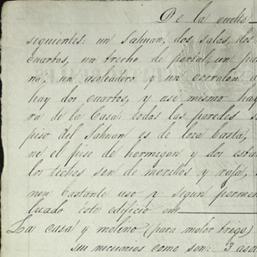 De la vuelta
siguientes: un Sahuan, dos salas, dos
cuartos, un trecho de portal, un pa
na, un asoleadero y un corralon a
hay dos cuartos, y asi mismo hay
ra de la Casa: todas las paredes s
piso del Sahuan es de loza basta,
ne el piso de hormigon y dos esta
los techos son de morillos y raja,
non bastante uso y segun permen
luado este edificio en
La casa y molino (para moler trigo)
Sus mecuarios como son: 3 asa